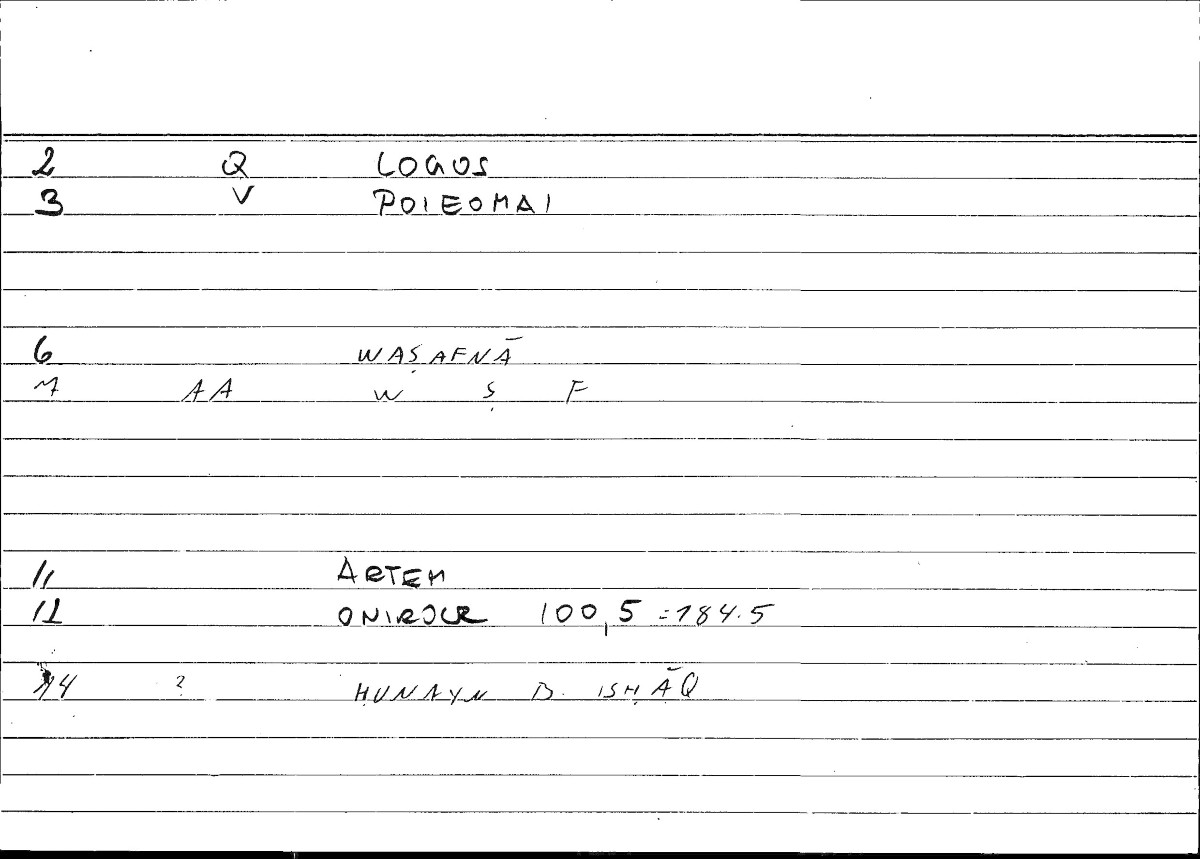 2 Q LOGOS
3 V POIEOMAI
6 WAṢAFNĀ
7 AA W Ṣ F
11 ARTEM
12 ONIROCR 100,5 = 184.5
14 ? ḤUNAYN B. ISḤĀQ